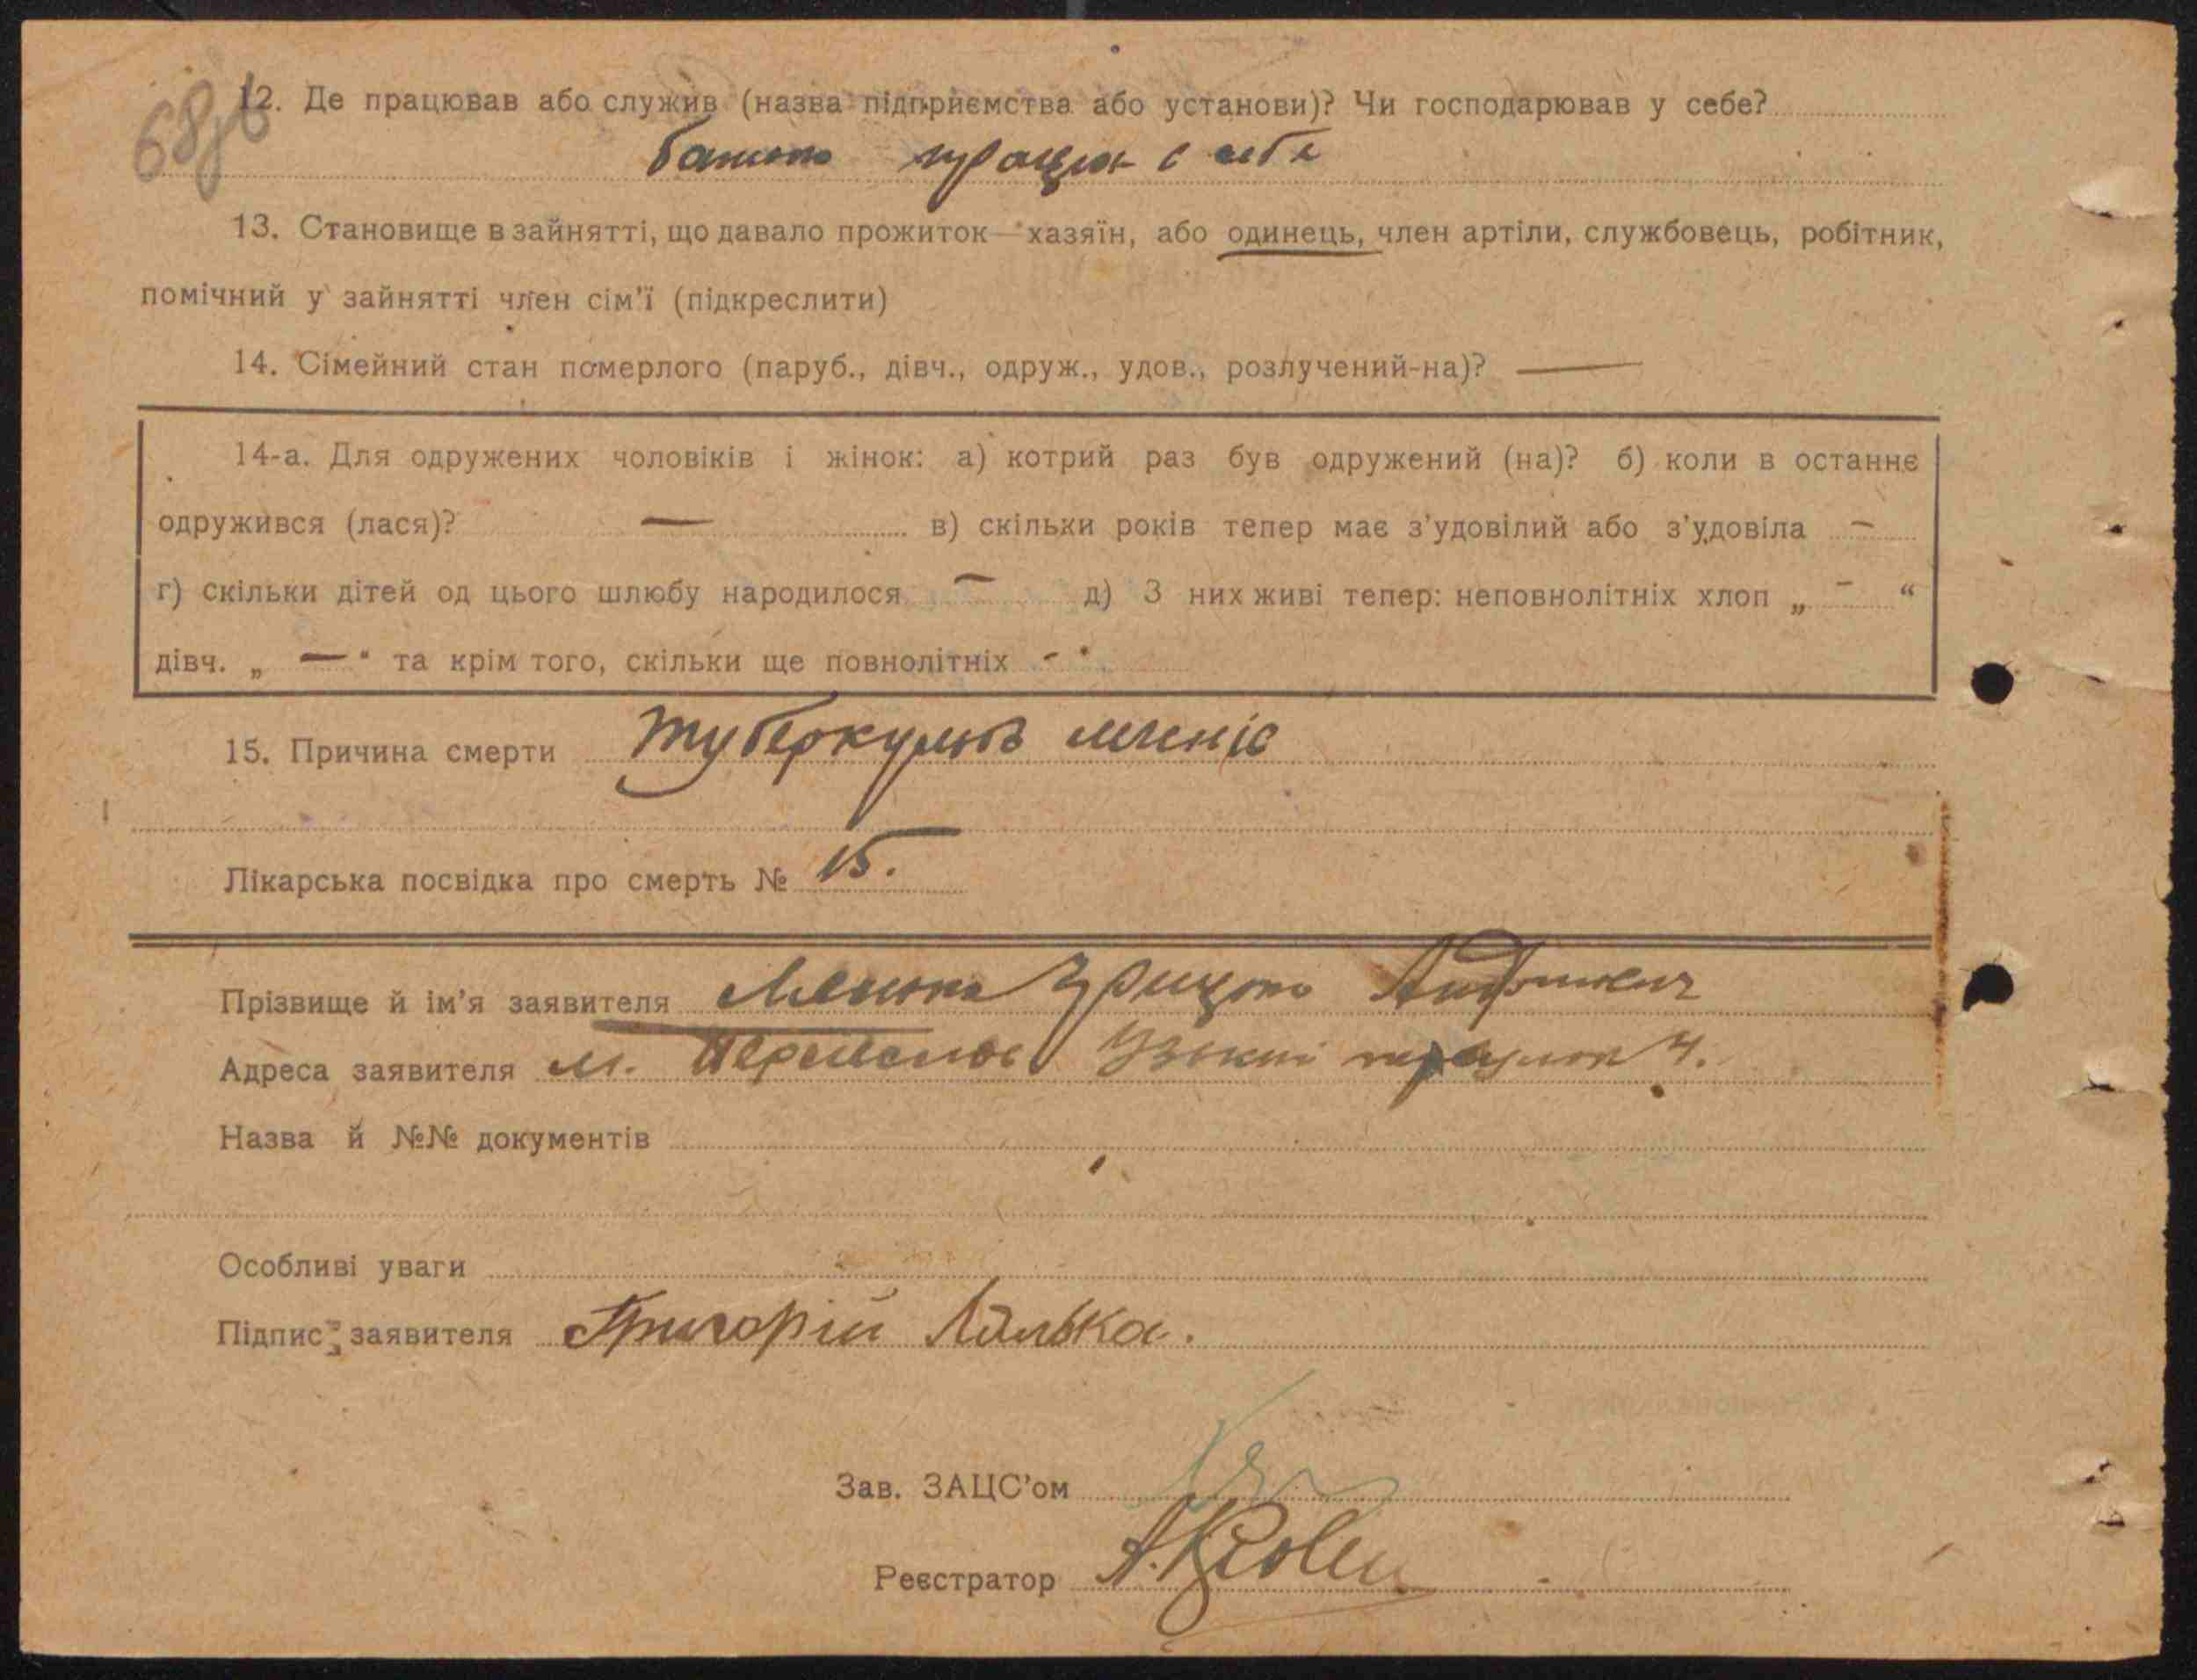 68зв
12. Де працював або служив (назва підприємства або установи)? Чи господарював у себе?
батько працює в себе
13. Становище в зайнятті, що давало прожиток—хазяїн, або одинець, член артіли, службовець, робітник,
помічний у зайнятті член сім'ї (підкреслити)
14. Сімейний стан померлого (паруб., дівч., одруж., удов., розлучений-на)? —
14-а. Для одружених чоловіків і жінок: а) котрий раз був одружений (на)? б) коли в останнє
одружився (лася)? — в) скільки років тепер має з'удовілий або з'удовіла —
г) скільки дітей од цього шлюбу народилося — д) З них живі тепер: неповнолітніх хлоп „ — “
дівч. „ — “ та крім того, скільки ще повнолітніх -
15. Причина смерти туберкульоз
Лікарська посвідка про смерть № 15.
Прізвище й ім'я заявителя Грицько
Адреса заявителя м. 4.
Назва й №№ документів
Особливі уваги
Підпис заявителя Григорій Лялька.
Зав. ЗАЦС'ом
Реєстратор